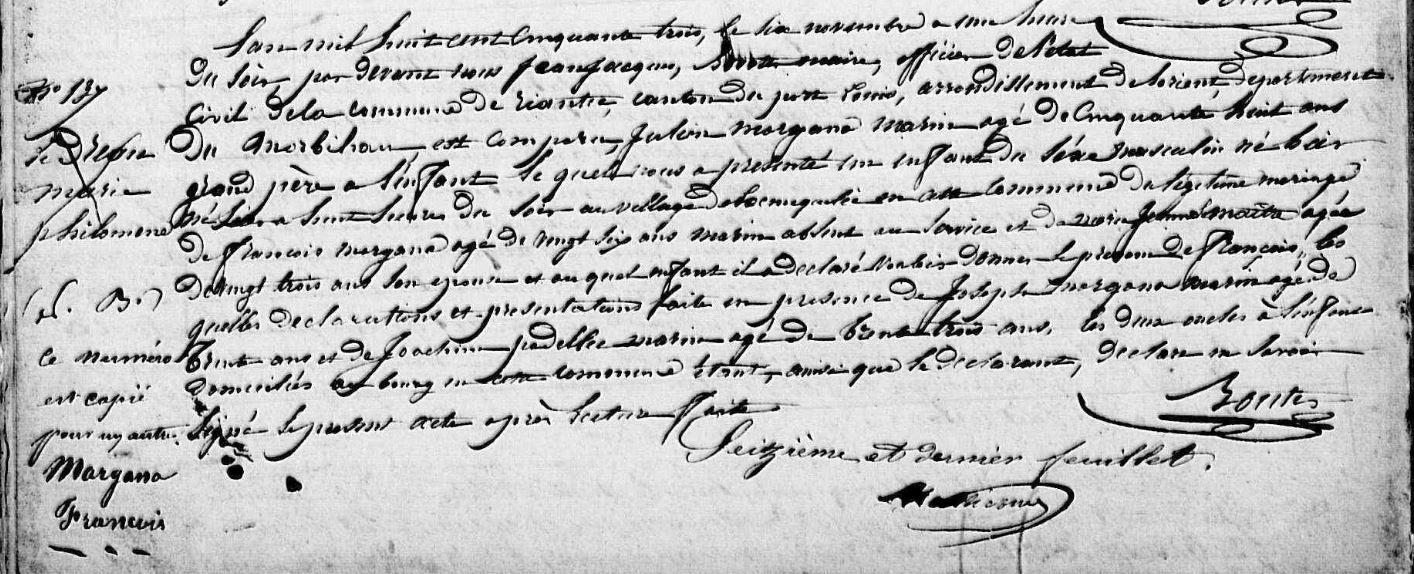 N° 137
Le Drefse
marie
philomene
(N. B.)
ce numéro
est copié
pour un autre.
Morgana
Francois
L'an mil huit cent cinquante trois, le six novembre a une heure
du soir, par devant nous jean jacques, maire, officier de l'état
civil de la commune de riantec, canton du port Louis, arrondissement de lorient, departement
du Morbihan est comparu, Julien morgana marin agé de Cinquante huit ans
grand père a l'enfant le quel nous a presenté un enfant du séxe masculin né hier
né hier a huit heures du soir au village de en cette commune du légitime mariage
de francois morgana agé de vingt six ans marin absent au service et de marie agée
de vingt trois ans son epouse et au quel enfant il a declaré vouloir donner le prénom de françois, les
quelles declarations et presentations faite en presence de Joseph morgana marin agé de
trente ans et de Joachim padellec marin agé de trente trois ans, les deux oncles a l'enfance
domiciliés au bourg en cette commune étant, ainsi que le declarant, declare ne savoir
signé le present acte après lecture faite
Seitzième et dernier feuillet.